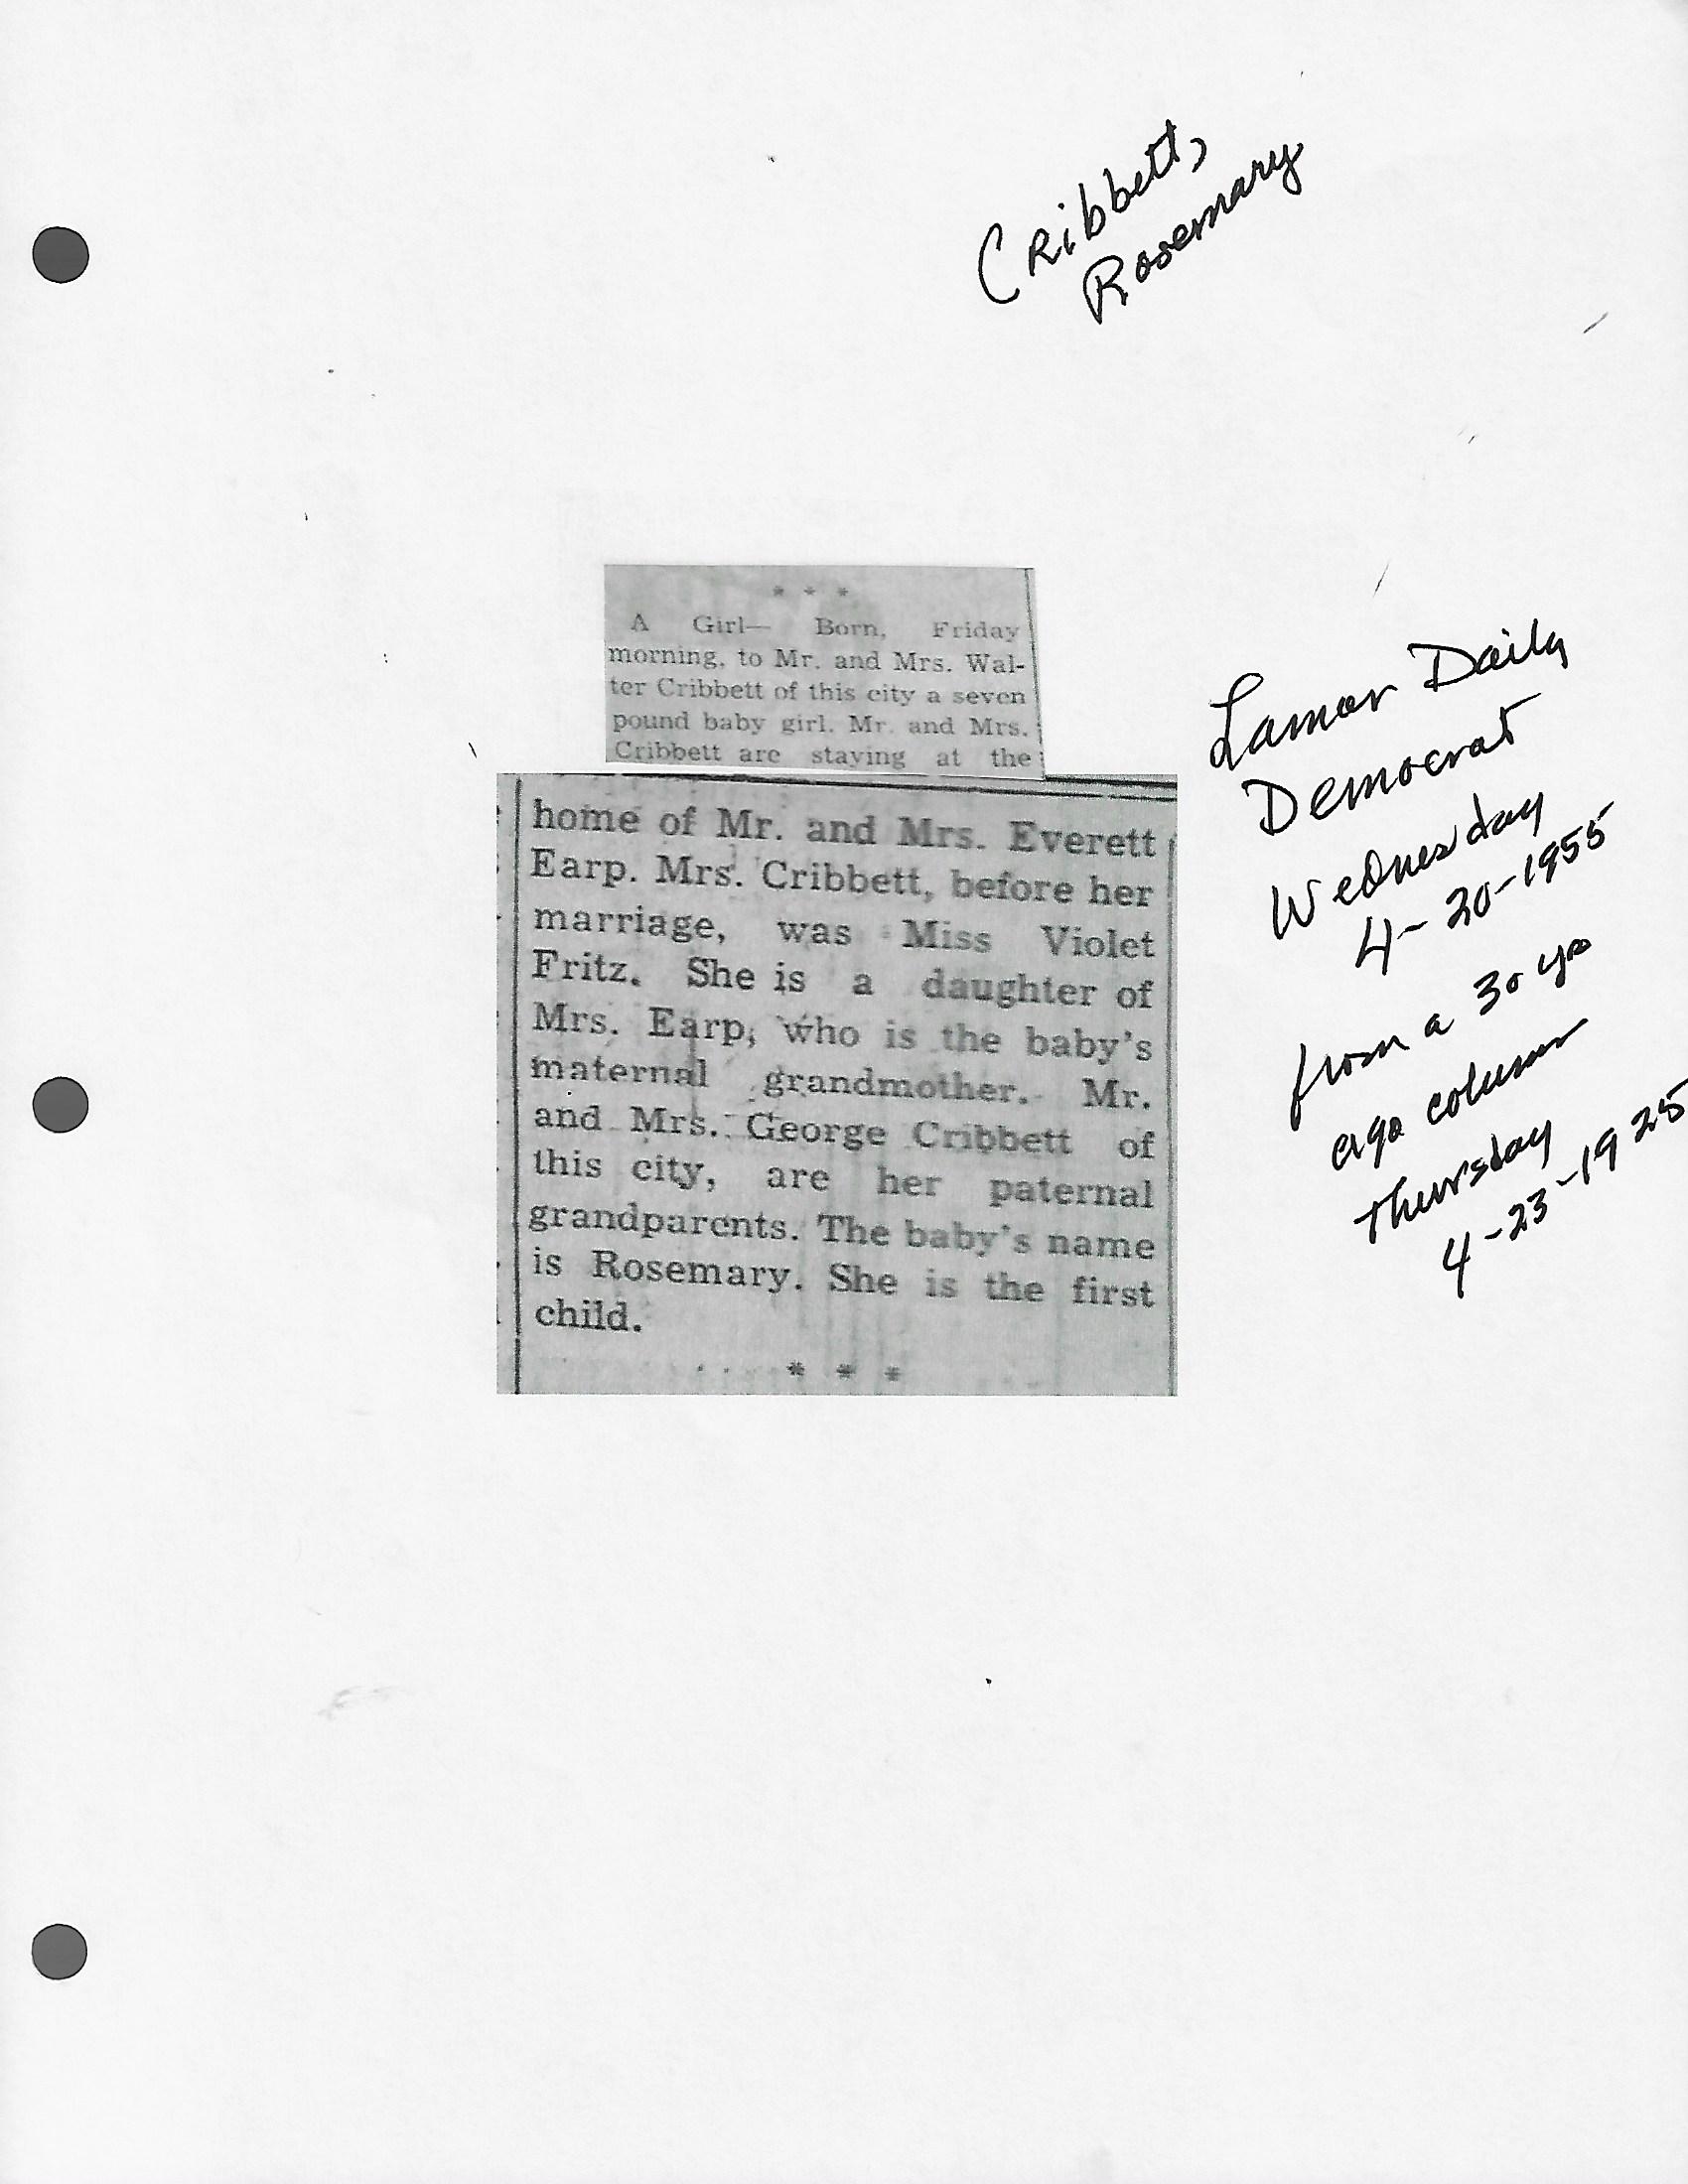 Cribbett,
Rosemary
* * *
A Girl— Born, Friday
morning, to Mr. and Mrs. Wal-
ter Cribbett of this city a seven
pound baby girl. Mr. and Mrs.
Cribbett are staying at the
home of Mr. and Mrs. Everett
Earp. Mrs. Cribbett, before her
marriage, was Miss Violet
Fritz. She is a daughter of
Mrs. Earp, who is the baby's
maternal grandmother. Mr.
and Mrs. George Cribbett of
this city, are her paternal
grandparents. The baby's name
is Rosemary. She is the first
child.
* * *
Lamar Daily
Democrat
Wednesday
4-20-1955
from a 30 yrs
ago column
Thursday
4-23-1925